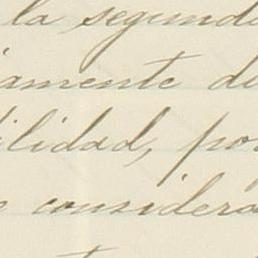 la segunda
iamente de
ilidad, por
e considera